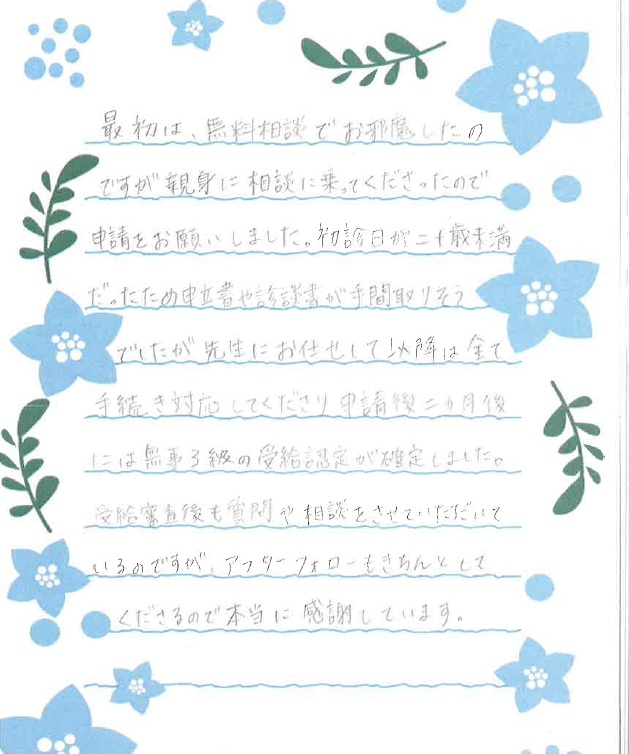 最初は、無料相談でお邪魔したの
ですが親身に相談に乗ってくださったので
申請をお願いしました。初診日が二十歳未満
だったため申立書や診談書が手間取りそう
でしたが先生にお任せして以降は全て
手続き対応してくださり申請後二ヵ月後
には無事3級の受給認定が確定しました。
受給審査後も質問や相談をさせていただいて
いるのですが、アフターフォローもきちんとして
くださるので本当に感謝しています。